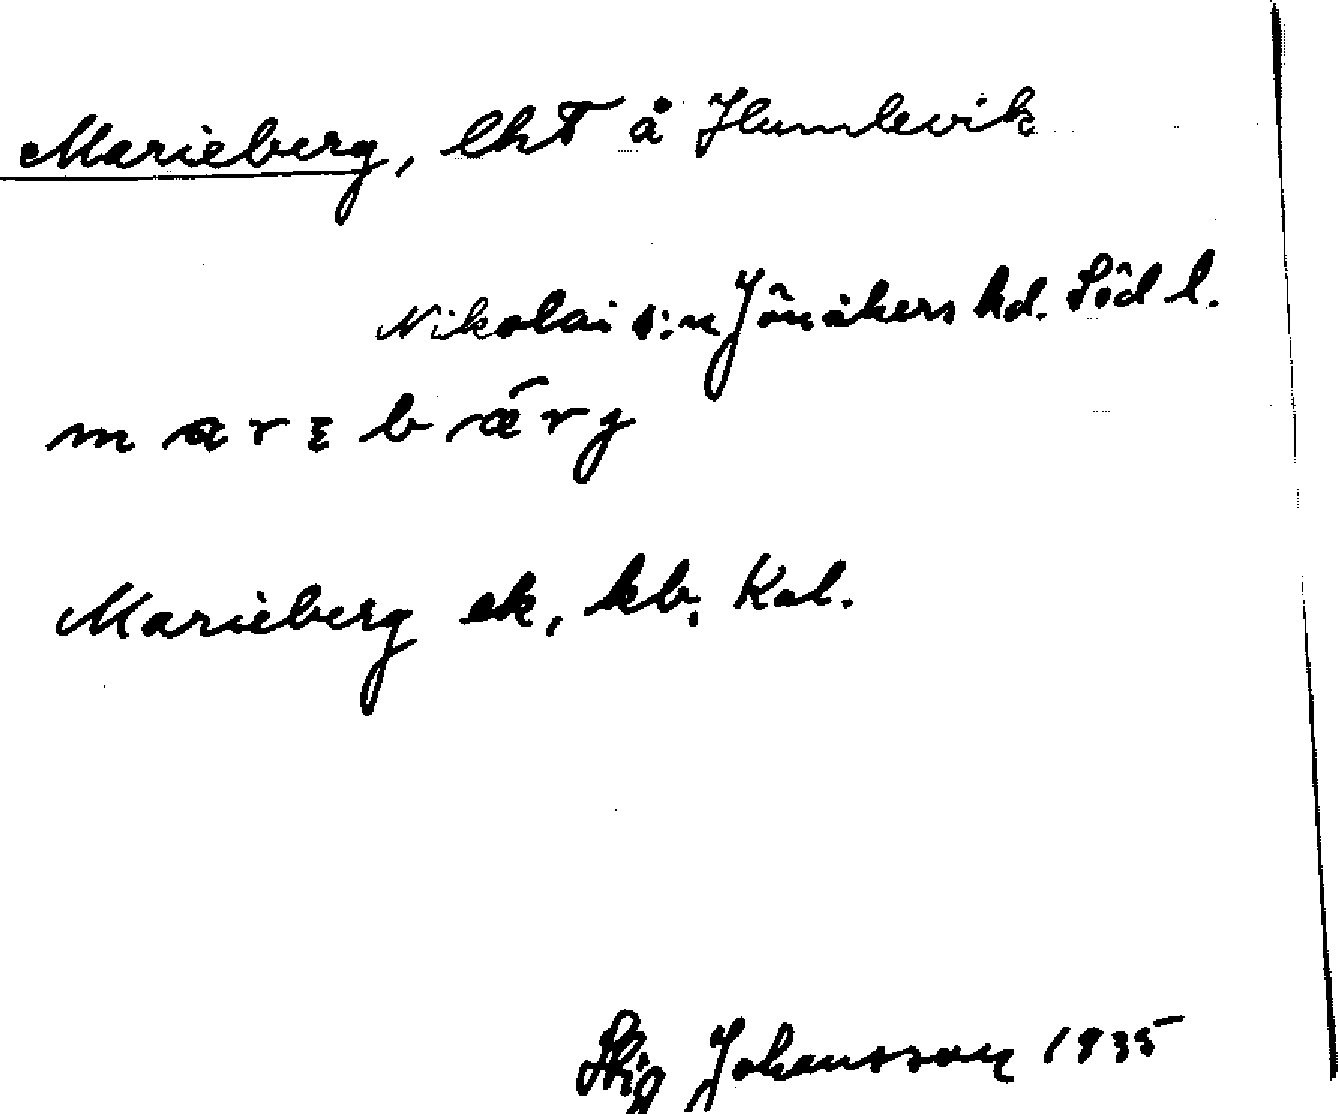 Marieberg, lht å Humlevik
Nikolai s:n Jönåkers hd. Södl.
m a r ɛ b æ̆ r g
Marieberg ek, kb, Kal.
Stig Johansson 1935